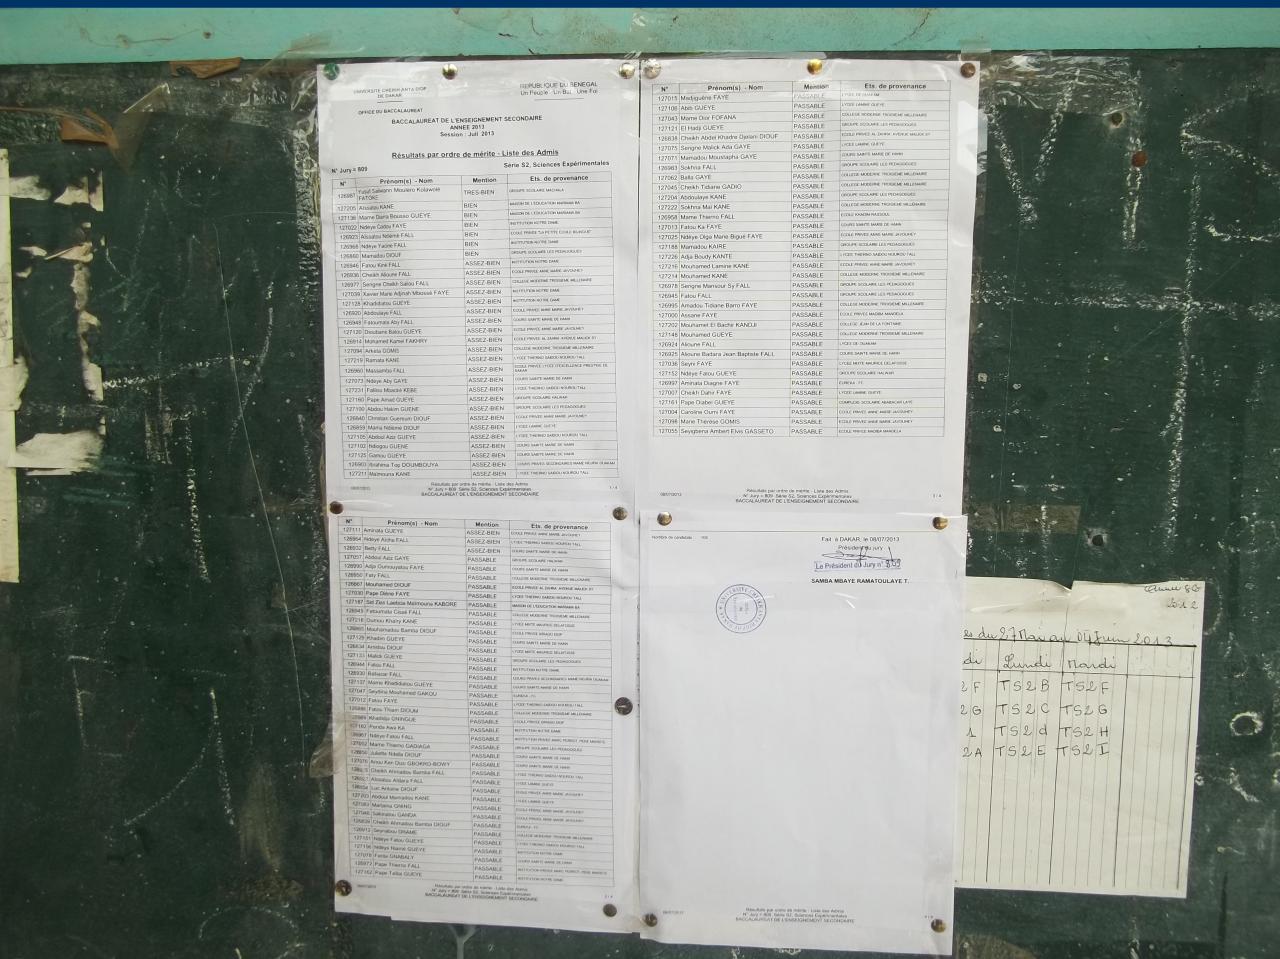 UNIVERSITE CHEIKH ANTA DIOP
DE DAKAR
REPUBLIQUE DU SENEGAL
Un Peuple - Un But - Une Foi
OFFICE DU BACCALAUREAT
BACCALAUREAT DE L'ENSEIGNEMENT SECONDAIRE
ANNEE 2013
Session : Juil 2013
Résultats par ordre de mérite - Liste des Admis
N° Jury = 809 Série S2, Sciences Expérimentales
N° Prénom(s) - Nom Mention Ets. de provenance
TRES-BIEN GROUPE SCOLAIRE MACHALA
FATOKE
127205 Aissatou KANE BIEN MAISON DE L'EDUCATION MARIAMA BA
Mame Diarra Bousso GUEYE BIEN MAISON DE L'EDUCATION MARIAMA BA
127022 Ndèye Catou FAYE BIEN INSTITUTION NOTRE DAME
126923 Aissatou Ndèmé FALL BIEN
126968 Ndèye Yacine FALL BIEN INSTITUTION NOTRE DAME
126860 Mamadou DIOUF BIEN GROUPE SCOLAIRE LES PEDAGOGUES
126946 Fatou Kiné FALL ASSEZ-BIEN INSTITUTION NOTRE DAME
126936 Cheikh Alioune FALL ASSEZ-BIEN ECOLE PRIVEE ANNE MARIE JAVOUHEY
126977 Serigne Cheikh Saliou FALL ASSEZ-BIEN COLLEGE MODERNE TROISIEME MILLENAIRE
127039 Xavier Marie Adjinah Mbossé FAYE ASSEZ-BIEN INSTITUTION NOTRE DAME
127128 Khadidiatou GUEYE ASSEZ-BIEN INSTITUTION NOTRE DAME
126920 Abdoulaye FALL ASSEZ-BIEN ECOLE PRIVEE ANNE MARIE JAVOUHEY
126948 Fatoumata Aby FALL ASSEZ-BIEN COURS SAINTE MARIE DE HANN
127120 Dioubane Batou GUEYE ASSEZ-BIEN ECOLE PRIVEE ANNE MARIE JAVOUHEY
126914 Mohamed Kamel FAKHRY ASSEZ-BIEN ECOLE PRIVEE AL ZAHRA AVENUE MALICK SY
127094 Arketa GOMIS ASSEZ-BIEN COLLEGE MODERNE TROISIEME MILLENAIRE
127219 Ramata KANE ASSEZ-BIEN LYCEE THIERNO SAIDOU NOUROU TALL
126960 Massamba FALL ASSEZ-BIEN ECOLE PRIVEE LYCEE D'EXCELLENCE PRESTIGE DE DAKAR
127073 Ndèye Aby GAYE ASSEZ-BIEN COURS SAINTE MARIE DE HANN
127231 Fallou Mbacké KEBE ASSEZ-BIEN LYCEE THIERNO SAIDOU NOUROU TALL
127160 Pape Amad GUEYE ASSEZ-BIEN GROUPE SCOLAIRE HALWAR
127100 Abdou Hakim GUENE ASSEZ-BIEN GROUPE SCOLAIRE LES PEDAGOGUES
126840 Christian Guemuin DIOUF ASSEZ-BIEN ECOLE PRIVEE ANNE MARIE JAVOUHEY
126859 Mama Ndième DIOUF ASSEZ-BIEN LYCEE LAMINE GUEYE
127105 Abdoul Aziz GUEYE ASSEZ-BIEN LYCEE THIERNO SAIDOU NOUROU TALL
127102 Ndiogou GUENE ASSEZ-BIEN COURS SAINTE MARIE DE HANN
127125 Gamou GUEYE ASSEZ-BIEN COURS SAINTE MARIE DE HANN
126903 Ibrahima Top DOUMBOUYA ASSEZ-BIEN
127211 Maïmouna KANE ASSEZ-BIEN LYCEE THIERNO SAIDOU NOUROU TALL
08/07/2013 Résultats par ordre de mérite - Liste des Admis 1 / 4
N° Jury = 809 Série S2, Sciences Expérimentales
BACCALAUREAT DE L'ENSEIGNEMENT SECONDAIRE
N° Prénom(s) - Nom Mention Ets. de provenance
127111 Aminata GUEYE ASSEZ-BIEN ECOLE PRIVEE ANNE MARIE JAVOUHEY
126964 Ndèye Aïcha FALL ASSEZ-BIEN LYCEE THIERNO SAIDOU NOUROU TALL
126932 Betty FALL ASSEZ-BIEN COURS SAINTE MARIE DE HANN
127057 Abdoul Aziz GAYE PASSABLE GROUPE SCOLAIRE HALWAR
126990 Adja Oumouyatou FAYE PASSABLE COURS SAINTE MARIE DE HANN
126950 Faty FALL PASSABLE COLLEGE MODERNE TROISIEME MILLENAIRE
126867 Mouhamed DIOUF PASSABLE ECOLE PRIVEE AL ZAHRA AVENUE MALICK SY
127030 Pape Diène FAYE PASSABLE LYCEE THIERNO SAIDOU NOUROU TALL
127187 Maïmouna KABORE PASSABLE MAISON DE L'EDUCATION MARIAMA BA
Fatoumata Cissé FALL PASSABLE COLLEGE MODERNE TROISIEME MILLENAIRE
127218 Oumou Khaïry KANE PASSABLE LYCEE MIXTE MAURICE DELAFOSSE
Mouhamadou Bamba DIOUF PASSABLE
127129 Khadim GUEYE PASSABLE COURS SAINTE MARIE DE HANN
126834 Amidou DIOUF PASSABLE LYCEE MIXTE MAURICE DELAFOSSE
127133 Malick GUEYE PASSABLE GROUPE SCOLAIRE LES PEDAGOGUES
126944 Fatou FALL PASSABLE INSTITUTION NOTRE DAME
126930 Babacar FALL PASSABLE
127137 Mame Khadidiatou GUEYE PASSABLE COURS SAINTE MARIE DE HANN
127047 Seydina Mouhamed GAKOU PASSABLE
127012 Fatou FAYE PASSABLE LYCEE THIERNO SAIDOU NOUROU TALL
Fatou Thiam DIOUM PASSABLE COLLEGE MODERNE TROISIEME MILLENAIRE
Khadidja GNINGUE PASSABLE
Penda Awa KA PASSABLE INSTITUTION NOTRE DAME
Ndèye Fatou FALL PASSABLE
127052 Mame Thierno GADIAGA PASSABLE GROUPE SCOLAIRE LES PEDAGOGUES
Juliette Ndella DIOUF PASSABLE COURS SAINTE MARIE DE HANN
GBOKRO-BOWY PASSABLE COURS SAINTE MARIE DE HANN
Cheikh Ahmadou Bamba FALL PASSABLE LYCEE THIERNO SAIDOU NOUROU TALL
Aissatou Aldiara FALL PASSABLE LYCEE LAMINE GUEYE
Luc Antoine DIOUF PASSABLE ECOLE PRIVEE ANNE MARIE JAVOUHEY
127203 Abdoul Mamadou KANE PASSABLE LYCEE LAMINE GUEYE
127083 Mariama GNING PASSABLE ECOLE PRIVEE ANNE MARIE JAVOUHEY
Sakinatou GANDA PASSABLE COURS SAINTE MARIE DE HANN
126839 Cheikh Ahmadou Bamba DIOUF PASSABLE
126912 Seynabou DRAME PASSABLE COLLEGE MODERNE TROISIEME MILLENAIRE
127151 Ndèye Fatou GUEYE PASSABLE LYCEE THIERNO SAIDOU NOUROU TALL
127156 Ndèye Niamé GUEYE PASSABLE INSTITUTION NOTRE DAME
127078 GNABALY PASSABLE COURS SAINTE MARIE DE HANN
126972 Pape Thierno FALL PASSABLE
127162 Pape Talba GUEYE PASSABLE INSTITUTION NOTRE DAME
Résultats par ordre de mérite - Liste des Admis 2 / 4
N° Jury = 809 Série S2, Sciences Expérimentales
BACCALAUREAT DE L'ENSEIGNEMENT SECONDAIRE
N° Prénom(s) - Nom Mention Ets. de provenance
127015 Madjiguène FAYE PASSABLE LYCEE DE OUAKAM
127106 Abib GUEYE PASSABLE LYCEE LAMINE GUEYE
127043 Mame Dior FOFANA PASSABLE COLLEGE MODERNE TROISIEME MILLENAIRE
127121 El Hadji GUEYE PASSABLE GROUPE SCOLAIRE LES PEDAGOGUES
126838 Cheikh Abdel Khadre Djelani DIOUF PASSABLE ECOLE PRIVEE AL ZAHRA AVENUE MALICK SY
127075 Serigne Malick Ada GAYE PASSABLE LYCEE LAMINE GUEYE
127071 Mamadou Moustapha GAYE PASSABLE COURS SAINTE MARIE DE HANN
126983 Sokhna FALL PASSABLE GROUPE SCOLAIRE LES PEDAGOGUES
127062 Balla GAYE PASSABLE COLLEGE MODERNE TROISIEME MILLENAIRE
127045 Cheikh Tidiane GADIO PASSABLE COLLEGE MODERNE TROISIEME MILLENAIRE
127204 Abdoulaye KANE PASSABLE GROUPE SCOLAIRE LES PEDAGOGUES
127222 Sokhna Maï KANE PASSABLE COLLEGE MODERNE TROISIEME MILLENAIRE
126958 Mame Thierno FALL PASSABLE ECOLE KHADIM RASSOUL
127013 Fatou Ka FAYE PASSABLE COURS SAINTE MARIE DE HANN
127025 Ndèye Olga Marie Bigué FAYE PASSABLE ECOLE PRIVEE ANNE MARIE JAVOUHEY
127188 Mamadou KAIRE PASSABLE GROUPE SCOLAIRE LES PEDAGOGUES
127226 Adja Boudy KANTE PASSABLE LYCEE THIERNO SAIDOU NOUROU TALL
127216 Mouhamed Lamine KANE PASSABLE ECOLE PRIVEE ANNE MARIE JAVOUHEY
127214 Mouhamed KANE PASSABLE COLLEGE MODERNE TROISIEME MILLENAIRE
126978 Serigne Mansour Sy FALL PASSABLE GROUPE SCOLAIRE LES PEDAGOGUES
126945 Fatou FALL PASSABLE GROUPE SCOLAIRE LES PEDAGOGUES
126995 Amadou Tidiane Barro FAYE PASSABLE COLLEGE MODERNE TROISIEME MILLENAIRE
127000 Assane FAYE PASSABLE ECOLE PRIVEE MADIBA MANDELA
127202 Mouhamet El Bachir KANDJI PASSABLE COLLEGE JEAN DE LA FONTAINE
127148 Mouhamed GUEYE PASSABLE COLLEGE MODERNE TROISIEME MILLENAIRE
126924 Alioune FALL PASSABLE LYCEE DE OUAKAM
126925 Alioune Badara Jean Baptiste FALL PASSABLE COURS SAINTE MARIE DE HANN
127036 Seyni FAYE PASSABLE LYCEE MIXTE MAURICE DELAFOSSE
127152 Ndèye Fatou GUEYE PASSABLE GROUPE SCOLAIRE HALWAR
126997 Aminata Diagne FAYE PASSABLE
127007 Cheikh Dahir FAYE PASSABLE LYCEE LAMINE GUEYE
127161 Pape Diabel GUEYE PASSABLE COMPLEXE SCOLAIRE ABABACAR LAYE
127004 Caroline Oumi FAYE PASSABLE ECOLE PRIVEE ANNE MARIE JAVOUHEY
127098 Marie Thérèse GOMIS PASSABLE ECOLE PRIVEE ANNE MARIE JAVOUHEY
127055 Seyigbena Ambert Elvis GASSETO PASSABLE ECOLE PRIVEE MADIBA MANDELA
08/07/2013 Résultats par ordre de mérite - Liste des Admis 3 / 4
N° Jury = 809 Série S2, Sciences Expérimentales
BACCALAUREAT DE L'ENSEIGNEMENT SECONDAIRE
Nombre de candidats
Fait à DAKAR, le 08/07/2013
Président du jury
Le Président du Jury n° 809
SAMBA MBAYE RAMATOULAYE T.
08/07/2013 Résultats par ordre de mérite - Liste des Admis 4 / 4
N° Jury = 809 Série S2, Sciences Expérimentales
BACCALAUREAT DE L'ENSEIGNEMENT SECONDAIRE
du 27 Mai au 04 Juin 2013
di Lundi Mardi
2F TS2B TS2F
2G TS2C TS2G
1 TS2d TS2H
2A TS2E TS2I